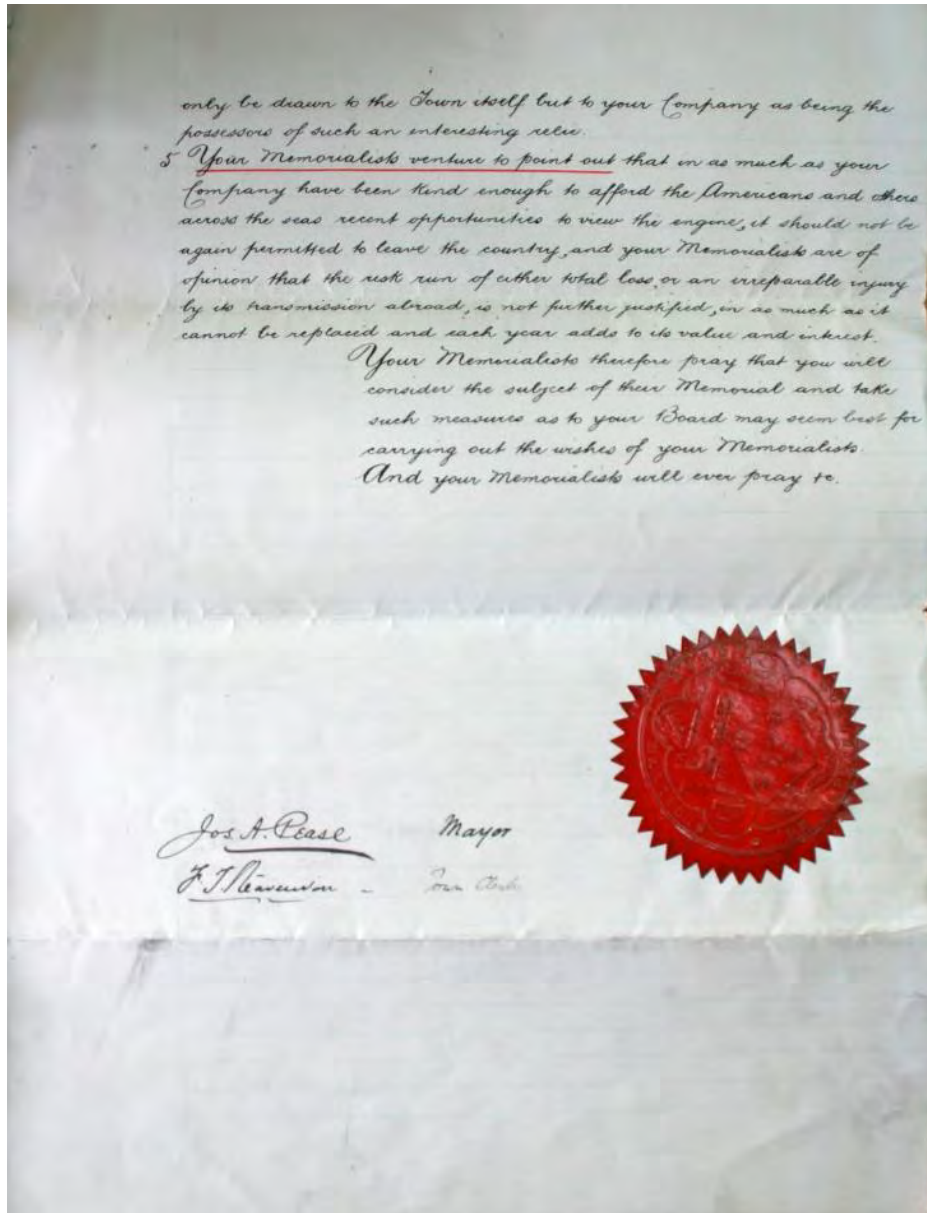 only be drawn to the Town itself but to your Company as being the
possessors of such an interesting relic.
5 Your Memorialists venture to point out that in as much as your
Company have been kind enough to afford the Americans and others
across the seas recent opportunities to view the engine, it should not be
again permitted to leave the country, and your Memorialists are of
opinion that the risk run of either total loss, or an irreparable injury
by its transmission abroad, is not further justified, in as much as it
cannot be replaced and each year adds to its value and interest.
Your Memorialists therefore pray that you will
consider the subject of their Memorial and take
such measures as to your Board may seem best for
carrying out the wishes of your Memorialists.
And your Memorialists will ever pray &c.
Jos. A. Pease Mayor
F. T. Steavenson - Town Clerk